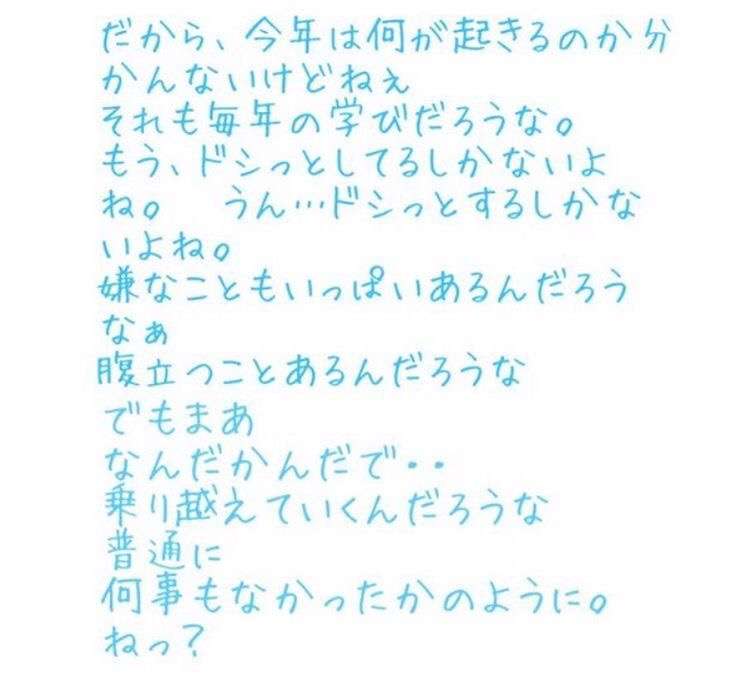 だから、今年は何が起きるのか分
かんないけどねぇ
それも毎年の学びだろうな。
もう、ドシっとしてるしかないよ
ね。 うん…ドシっとするしかな
いよね。
嫌なこともいっぱいあるんだろう
なぁ
腹立つことあるんだろうな
でもまあ
なんだかんだで・・
乗り越えていくんだろうな
普通に
何事もなかったかのように。
ねっ？